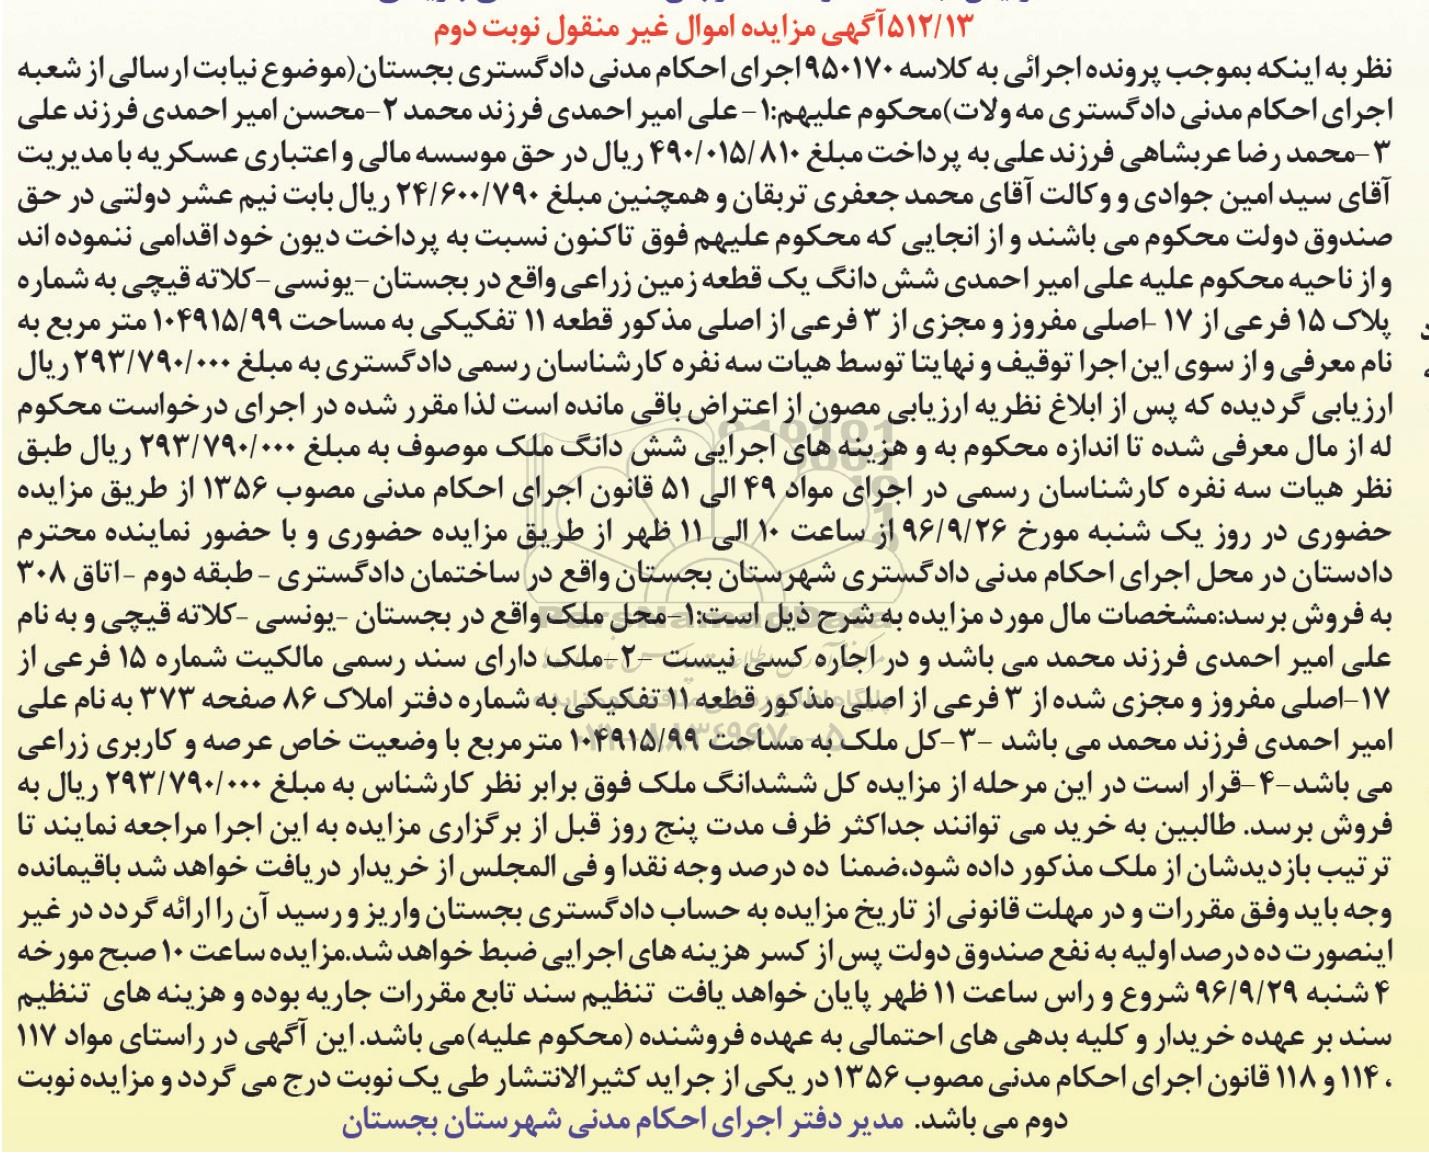 ۵۱۲/۱۳آگهی مزایده اموال غیر منقول نوبت دوم
نظر به اینکه بموجب پرونده اجرائی به کلاسه ۹۵۰۱۷۰اجرای احکام مدنی دادگستری بجستان(موضوع نیابت ارسالی از شعبه
اجرای احکام مدنی دادگستری مه ولات)محکوم علیهم:۱- علی امیر احمدی فرزند محمد ۲-محسن امیر احمدی فرزند علی
۳-محمد رضا عربشاهی فرزند علی به پرداخت مبلغ ۴۹۰/۰۱۵/۸۱۰ ریال در حق موسسه مالی و اعتباری عسکریه با مدیریت
آقای سید امین جوادی و وکالت آقای محمد جعفری تربقان و همچنین مبلغ ۲۴/۶۰۰/۷۹۰ ریال بابت نیم عشر دولتی در حق
صندوق دولت محکوم می باشند و از انجایی که محکوم علیهم فوق تاکنون نسبت به پرداخت دیون خود اقدامی ننموده اند
و از ناحیه محکوم علیه علی امیر احمدی شش دانگ یک قطعه زمین زراعی واقع در بجستان-یونسی-کلاته قیچی به شماره
پلاک ۱۵ فرعی از ۱۷ -اصلی مفروز و مجزی از ۳ فرعی از اصلی مذکور قطعه ۱۱ تفکیکی به مساحت ۱۰۴۹۱۵/۹۹ متر مربع به
نام معرفی و از سوی این اجرا توقیف و نهایتا توسط هیات سه نفره کارشناسان رسمی دادگستری به مبلغ ۲۹۳/۷۹۰/۰۰۰ ریال
ارزیابی گردیده که پس از ابلاغ نظریه ارزیابی مصون از اعتراض باقی مانده است لذا مقرر شده در اجرای درخواست محکوم
له از مال معرفی شده تا اندازه محکوم به و هزینه های اجرایی شش دانگ ملک موصوف به مبلغ ۲۹۳/۷۹۰/۰۰۰ ریال طبق
نظر هیات سه نفره کارشناسان رسمی در اجرای مواد ۴۹ الی ۵۱ قانون اجرای احکام مدنی مصوب ۱۳۵۶ از طریق مزایده
حضوری در روز یک شنبه مورخ ۹۶/۹/۲۶ از ساعت ۱۰ الی ۱۱ ظهر از طریق مزایده حضوری و با حضور نماینده محترم
دادستان در محل اجرای احکام مدنی دادگستری شهرستان بجستان واقع در ساختمان دادگستری - طبقه دوم -اتاق ۳۰۸
به فروش برسد:مشخصات مال مورد مزایده به شرح ذیل است:۱-محل ملک واقع در بجستان -یونسی -کلاته قیچی و به نام
علی امیر احمدی فرزند محمد می باشد و در اجاره کسی نیست -۲-ملک دارای سند رسمی مالکیت شماره ۱۵ فرعی از
۱۷-اصلی مفروز و مجزی شده از ۳ فرعی از اصلی مذکور قطعه ۱۱ تفکیکی به شماره دفتر املاک ۸۶ صفحه ۳۷۳ به نام علی
امیر احمدی فرزند محمد می باشد -۳-کل ملک به مساحت ۱۰۴۹۱۵/۹۹ مترمربع با وضعیت خاص عرصه و کاربری زراعی
می باشد-۴-قرار است در این مرحله از مزایده کل ششدانگ ملک فوق برابر نظر کارشناس به مبلغ ۲۹۳/۷۹۰/۰۰۰ ریال به
فروش برسد. طالبین به خرید می توانند جداکثر ظرف مدت پنج روز قبل از برگزاری مزایده به این اجرا مراجعه نمایند تا
ترتیب بازدیدشان از ملک مذکور داده شود،ضمنا ده درصد وجه نقدا و فی المجلس از خریدار دریافت خواهد شد باقیمانده
وجه باید وفق مقررات و در مهلت قانونی از تاریخ مزایده به حساب دادگستری بجستان واریز و رسید آن را ارائه گردد در غیر
اینصورت ده درصد اولیه به نفع صندوق دولت پس از کسر هزینه های اجرایی ضبط خواهد شد.مزایده ساعت ۱۰ صبح مورخه
۴ شنبه ۹۶/۹/۲۹ شروع و راس ساعت ۱۱ ظهر پایان خواهد یافت تنظیم سند تابع مقررات جاریه بوده و هزینه های تنظیم
سند بر عهده خریدار و کلیه بدهی های احتمالی به عهده فروشنده (محکوم علیه)می باشد. این آگهی در راستای مواد ۱۱۷
، ۱۱۴ و ۱۱۸ قانون اجرای احکام مدنی مصوب ۱۳۵۶ در یکی از جراید کثیرالانتشار طی یک نوبت درج می گردد و مزایده نوبت
دوم می باشد. مدیر دفتر اجرای احکام مدنی شهرستان بجستان
ParsNamadData